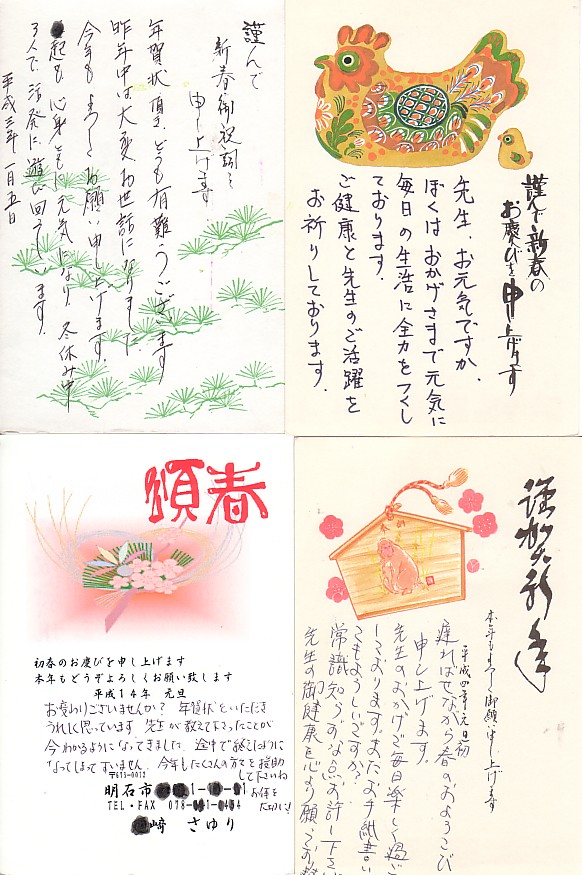 謹んで
新春御祝詞を
申し上げます。
年賀状頂き、どうも有難うございます
昨年中は大変お世話になりました
今年も よろしくお願い申し上げます。
起も 心身ともに元気になり、冬休み中
3人で活発に遊び回っています。
平成三年 一月五日
謹んで新春の
お慶びを申し上げます
先生、お元気ですか。
ぼくはおかげさまで元気に
毎日の生活に全力をつくし
ております。
ご健康と先生のご活躍を
お祈りしております。
頌春
初春のお慶びを申し上げます
本年もどうぞよろしくお願い致します
平成14年 元旦
お変わりございませんか？ 年賀状をいただき
うれしく思っています 先生が教えて下さったことが
今わかるようになってきました。途中で終えたように
なってしまってすいません。今年もたくさんの方々を援助
して下さいね
お体を
大切に！
〒673-0012
明石市 1-1
TEL・FAX 078- 1-0454
崎 さゆり
謹賀新年
本年もよろしく御願い申し上げます
平成四年元旦初
遅ればせながら春のおよろこび
申し上げます。
先生のおかげで毎日楽しく過ご
しております。またお手紙書い
てもよろしいですか？
常識知らずな点お許し下さい
先生の御健康を心より願っております